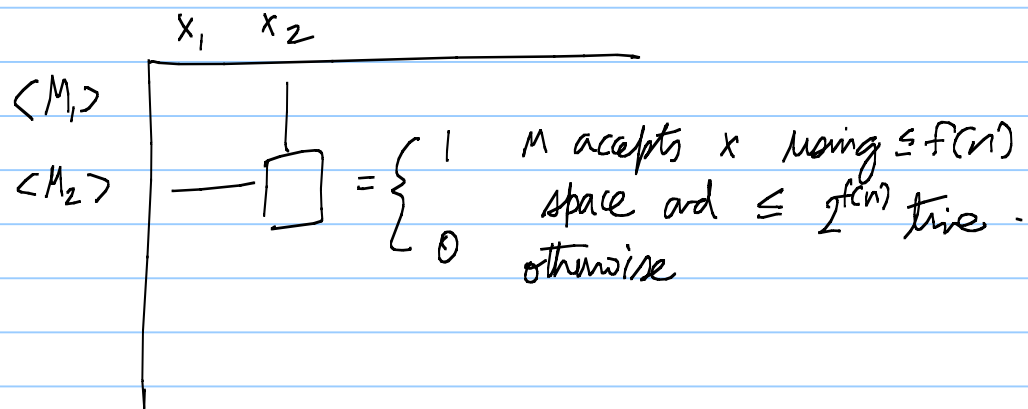 x₁ x₂
<M₁>
<M₂> = { 1 M accepts x using ≤ f(n)
space and ≤ 2^f(n) time.
0 otherwise